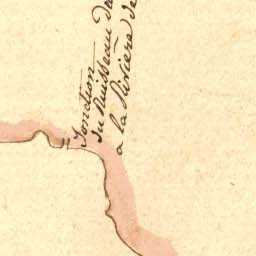 Jonction
du Ruisseau de
a la Rivière de